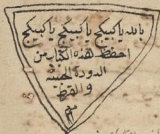 يالله ياكبيكج ياكبيكج ياكبيكج
احفظ هذه الكتاب من
الدودة الخبيثة